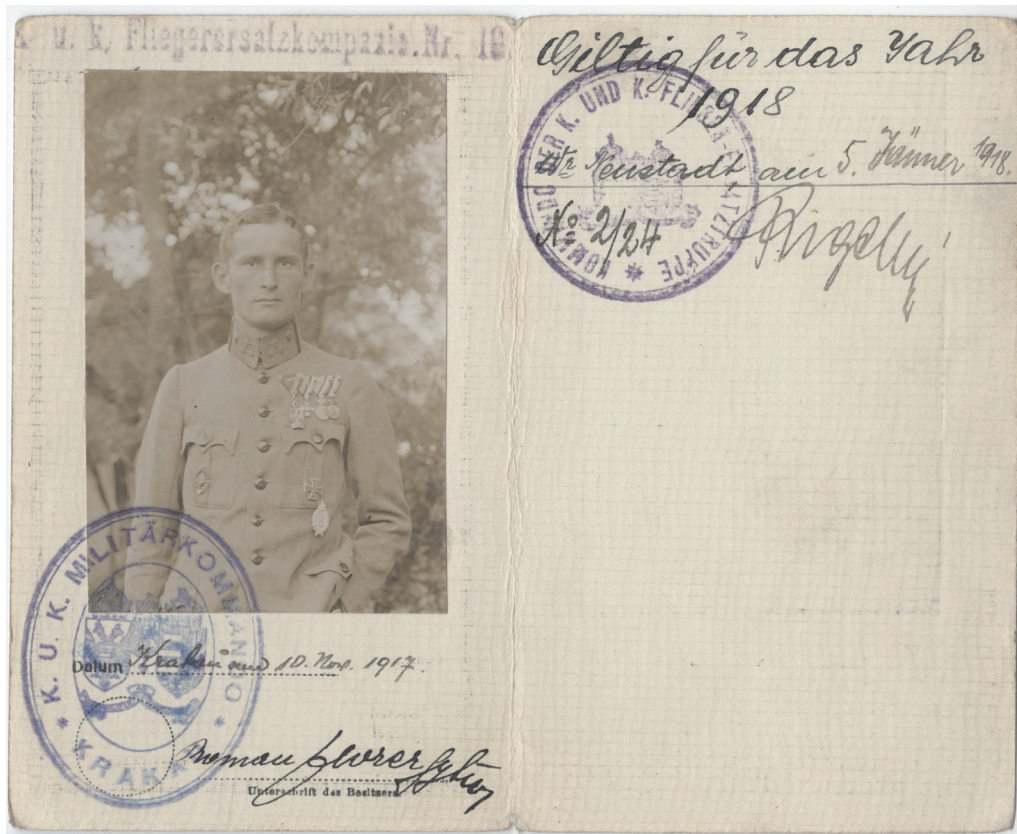 K. U. K. Fliegerersatzkompanie. Nr. 10
K. U. K. MILITÄRKOMMANDO
KRAKAU
Datum Krakau am 10. Nov. 1917.
Roman Florer
Unterschrift des Besitzers.
Giltig für das Jahr
1918
KOMMANDO DER K. UND K. FLIEGER-ERSATZTRUPPE
Wr Neustadt am 5. Jänner 1918.
No 2/24